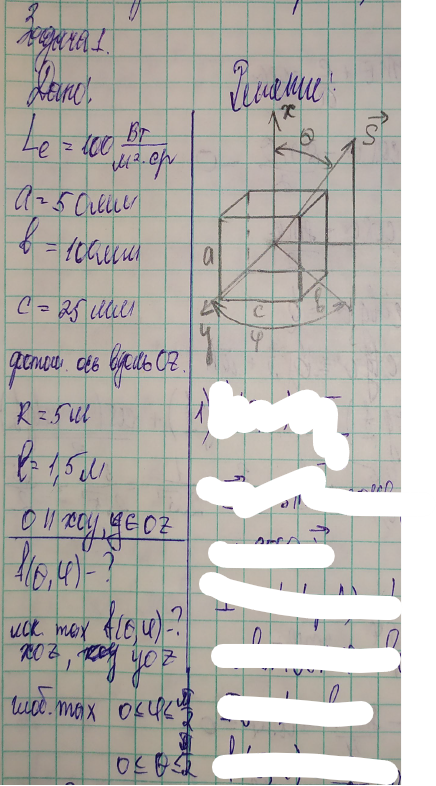 Задача 1.
Дано:
Le = 100 Вт/м²·ср
a = 50мм
b = 100мм
c = 25 мм
фотом. ось вдоль OZ.
R = 5м
l = 1,5м
O || xoy, ∈ OZ
f(θ,φ) - ?
лок. max f(θ,φ) - ?
xoz, yoz
глоб. max 0 ≤ φ ≤
0 ≤ θ ≤
Решение:
x
θ
S
a
c
b
y
φ
1)